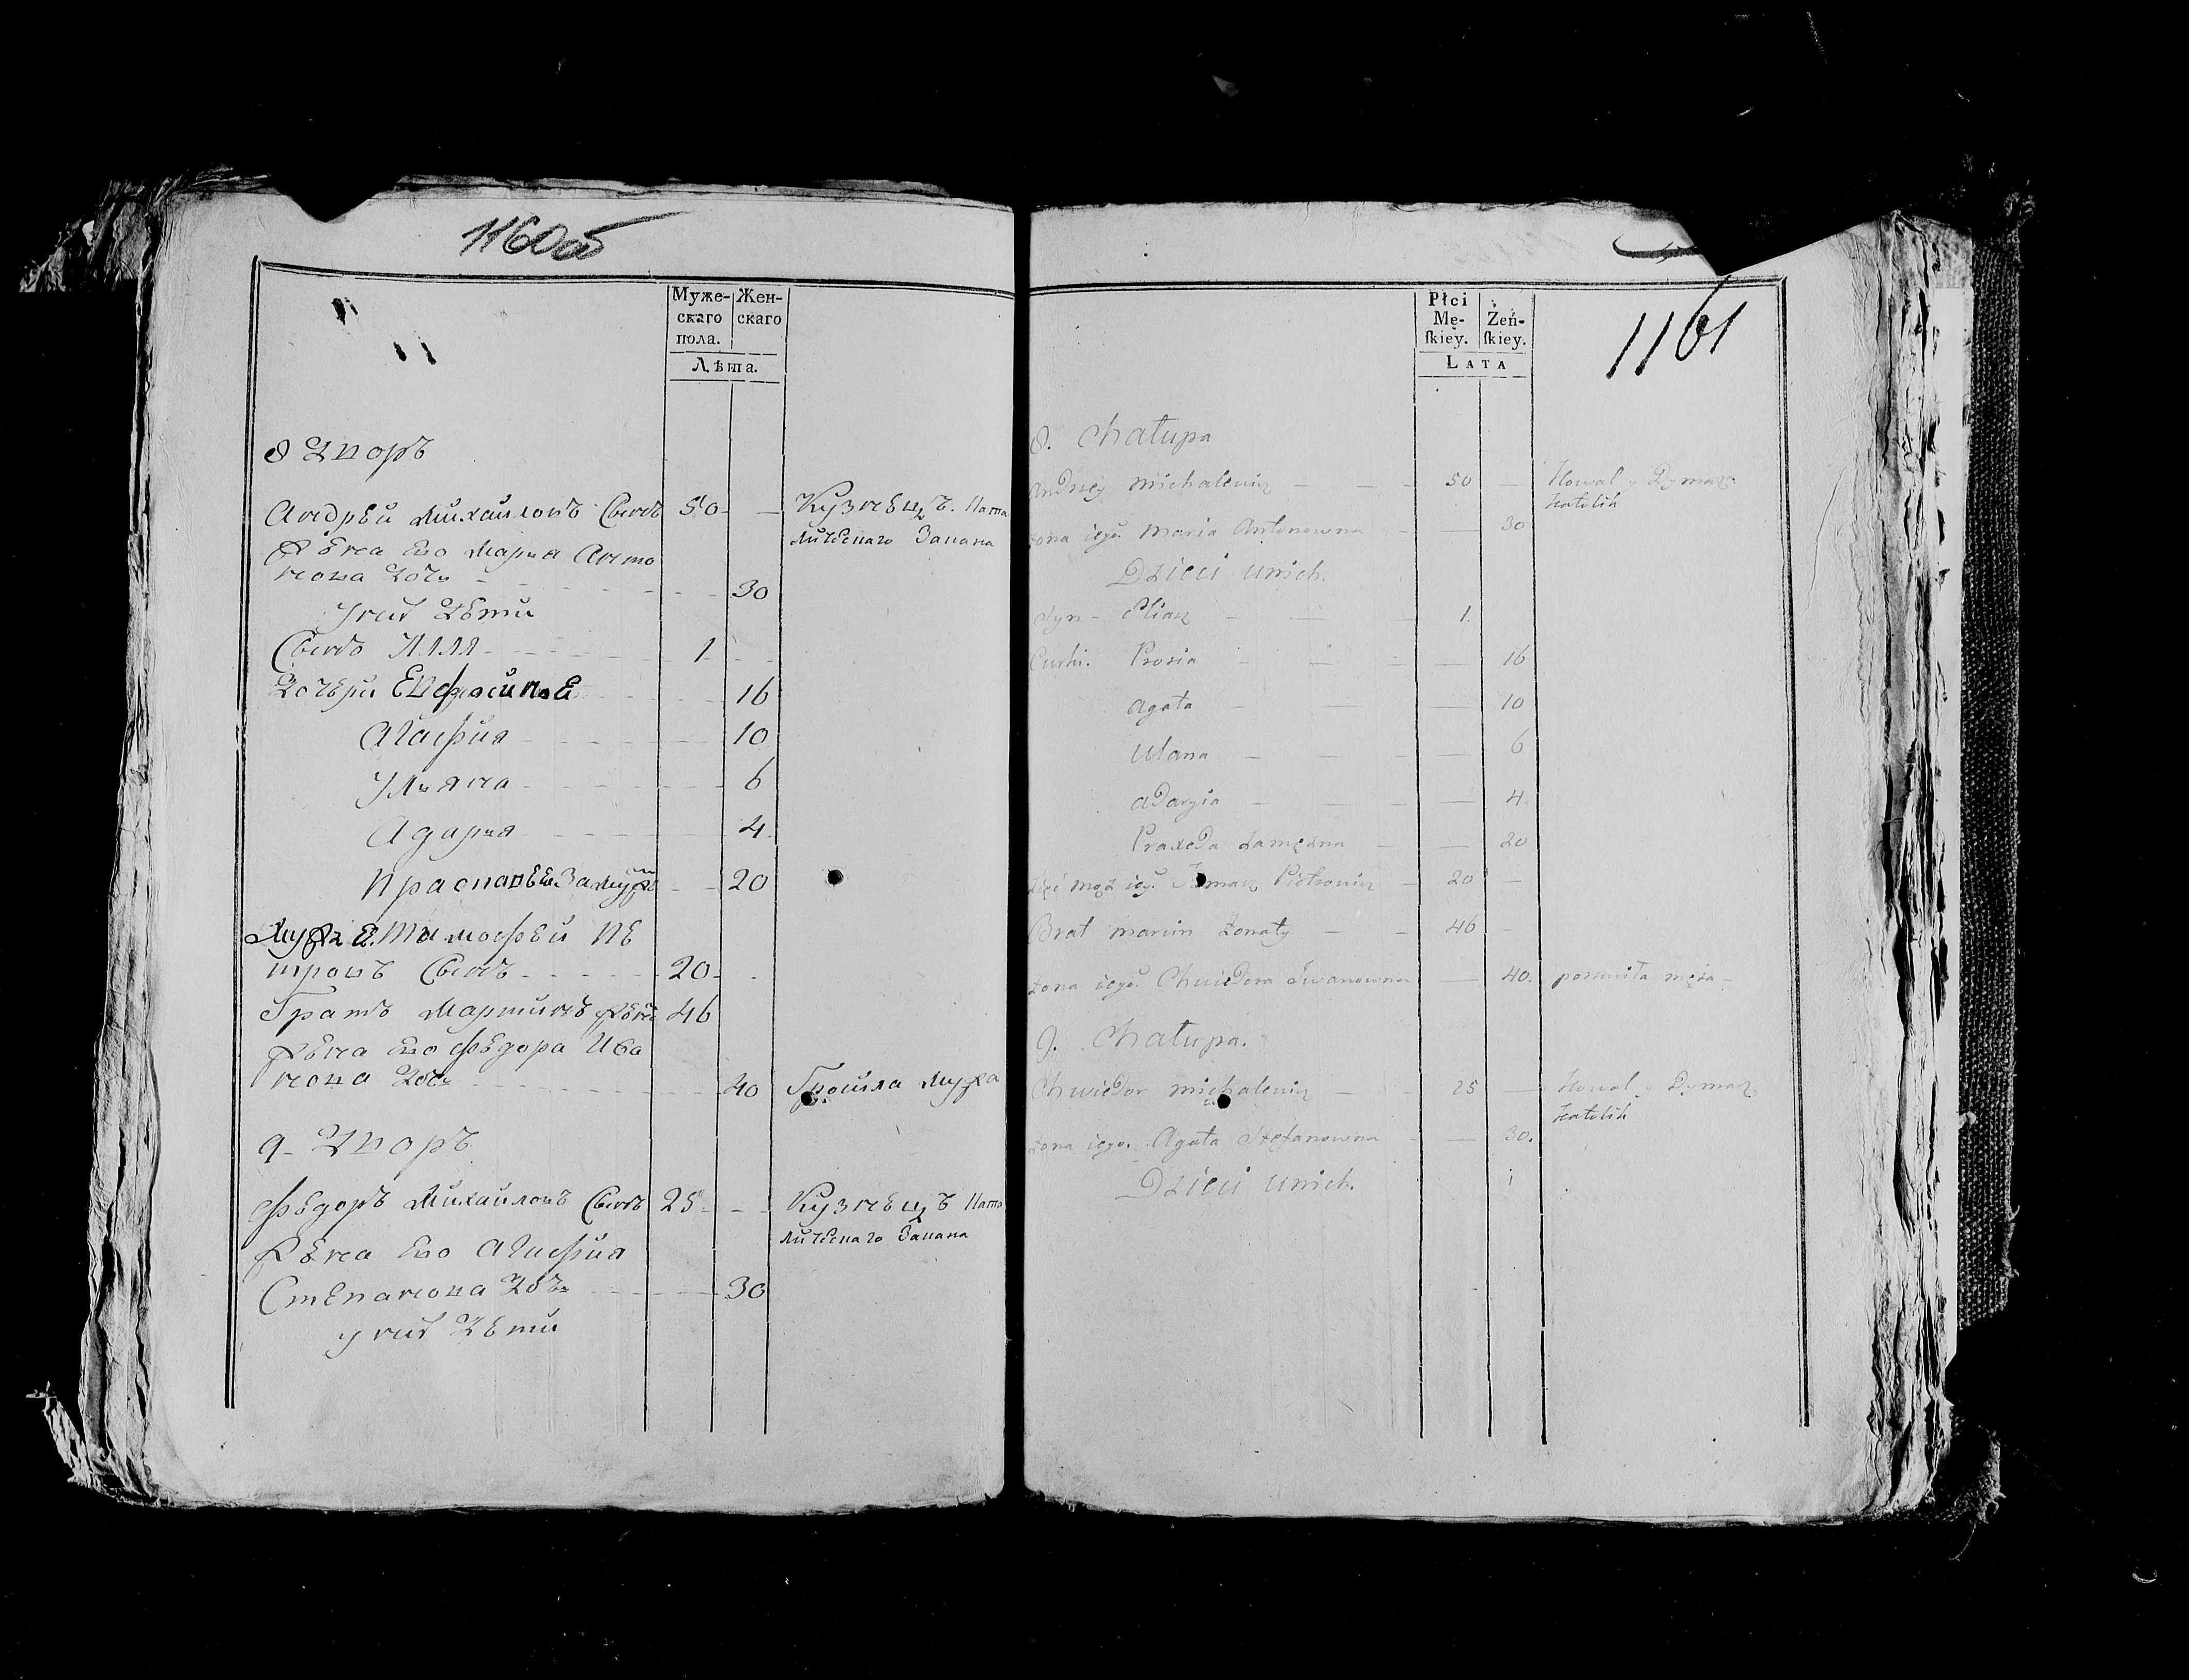 1160об
Муже- Жен-
скаго скаго
пола.
Лѣта.
8 Дворъ
Андрей Михайловъ Сынъ 50 Кузнецъ. Като
лическаго Закана
Жена Ево Марья Анто
нова Дочь 30
У них Дети
Сынъ Илля 1
Дочери Евфросинья 16
Агафия 10
Ульяна 6
Адарья 4
Прасковея Замужем 20
Муж е. Тимофей Пе
тровъ Сынъ 20
Братъ Мартинъ жен 46
Жена Ево Федора Ива
нова Дочь 40 Мужа
9 Дворъ
Федоръ Михайловъ Сынъ 25 Кузнецъ Като
лическаго Закана
Жена Ево Агафия
Степанова Дочь 30
У них Дети
1161
Płci
Mę- Żeń-
ſkiey. ſkiey.
LATA
8. Chałupa
Andrzey Michalewicz 50 Kowal y Dymarz
katolik
żona iego Maria Antonowna 30
Dzieci u nich.
Syn Eliasz 1.
Curki. Prosia 16
Agata 10
Ulana 6
Adaryia 4
Praxeda zamężna 20
zięć mąż iey Piotrowicz 20
Brat Marcin żonaty 46
żona iego Chwiedora Iwanowna 40. męża
9. Chałupa.
Chwiedor Michalewicz 25 Kowal y Dymarz
katolik
żona iego. Agata Stefanowna 30.
Dzieci u nich.